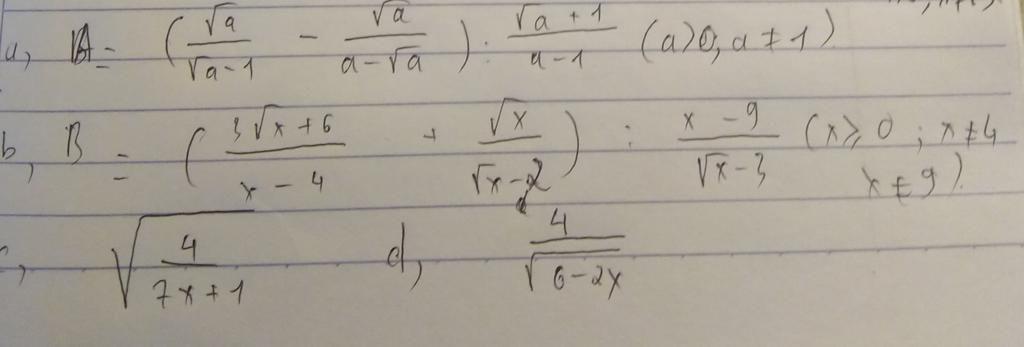 a, A = (√a/(√a-1) - √a/(a-√a)) : (√a+1)/(a-1) (a>0, a≠1)
b, B = ((3√x+6)/(x-4) + √x/(√x-2)) : (x-9)/(√x-3) (x≥0; x≠4
x≠9).
c, √(4/(7x+1)) d, 4/√(6-2x)